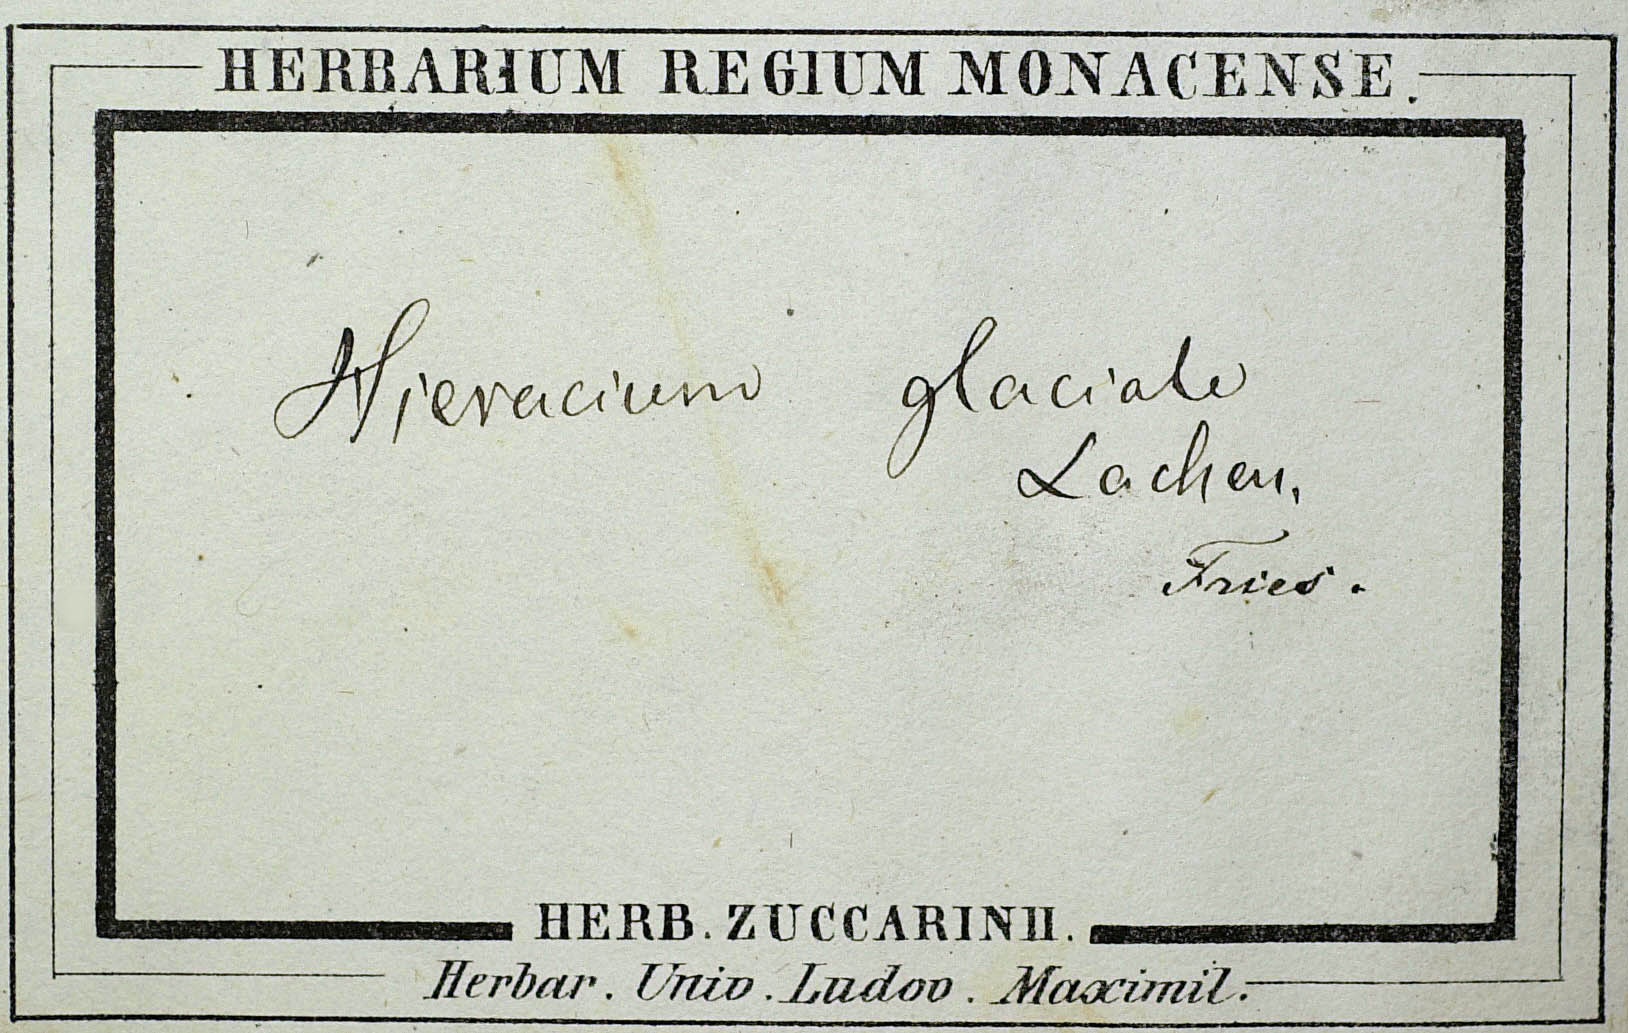 HERBARIUM REGIUM MONACENSE.
Hieracium glaciale
Lachen.
Fries.
HERB. ZUCCARINII.
Herbar. Univ. Ludov. Maximil.